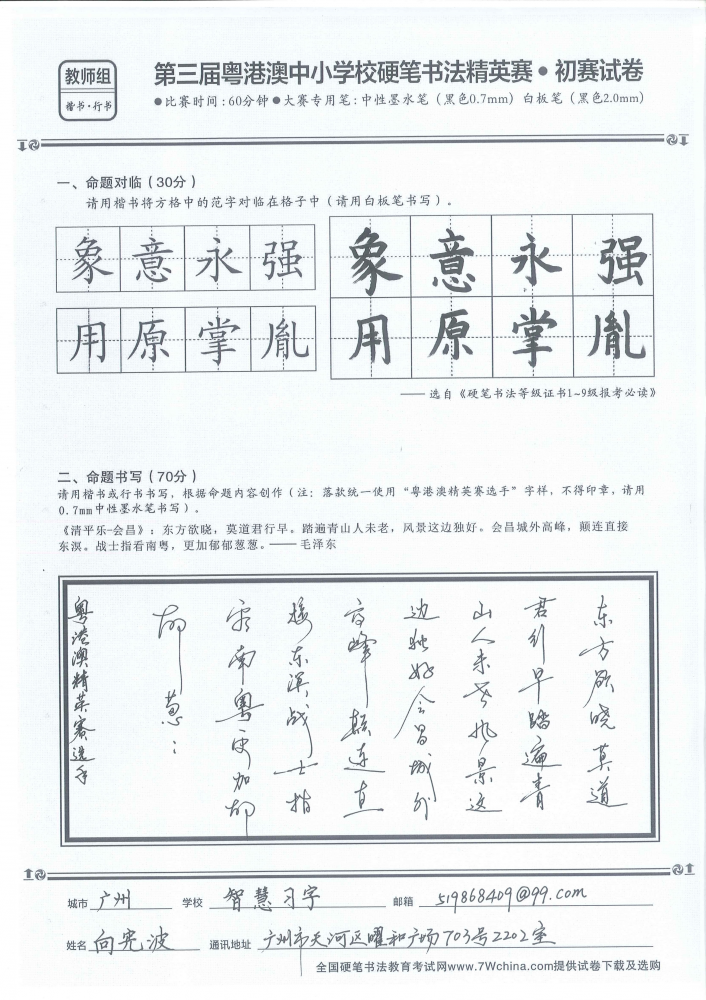 教师组
楷书·行书
第三届粤港澳中小学校硬笔书法精英赛·初赛试卷
●比赛时间:60分钟●大赛专用笔:中性墨水笔(黑色0.7mm)白板笔(黑色2.0mm)
一、命题对临(30分)
请用楷书将方格中的范字对临在格子中(请用白板笔书写)。
象意永强
用原掌胤
象意永强
用原掌胤
——选自《硬笔书法等级证书1~9级报考必读》
二、命题书写(70分)
请用楷书或行书书写,根据命题内容创作(注:落款统一使用“粤港澳精英赛选手”字样,不得印章,请用
0.7mm中性墨水笔书写)。
《清平乐-会昌》:东方欲晓,莫道君行早。踏遍青山人未老,风景这边独好。会昌城外高峰,颠连直接
东溟。战士指看南粤,更加郁郁葱葱。——毛泽东
东方欲晓莫道
君行早踏遍青
山人未老风景这
边独好会昌城外
高峰颠连直
接东溟战士指
看南粤更加郁
郁葱:
粤港澳精英赛选手
城市 广州 学校 智慧习字 邮箱 519868409@99.com
姓名 向宪波 通讯地址 广州市天河区曜和广场703号2202室
全国硬笔书法教育考试网www.7Wchina.com提供试卷下载及选购